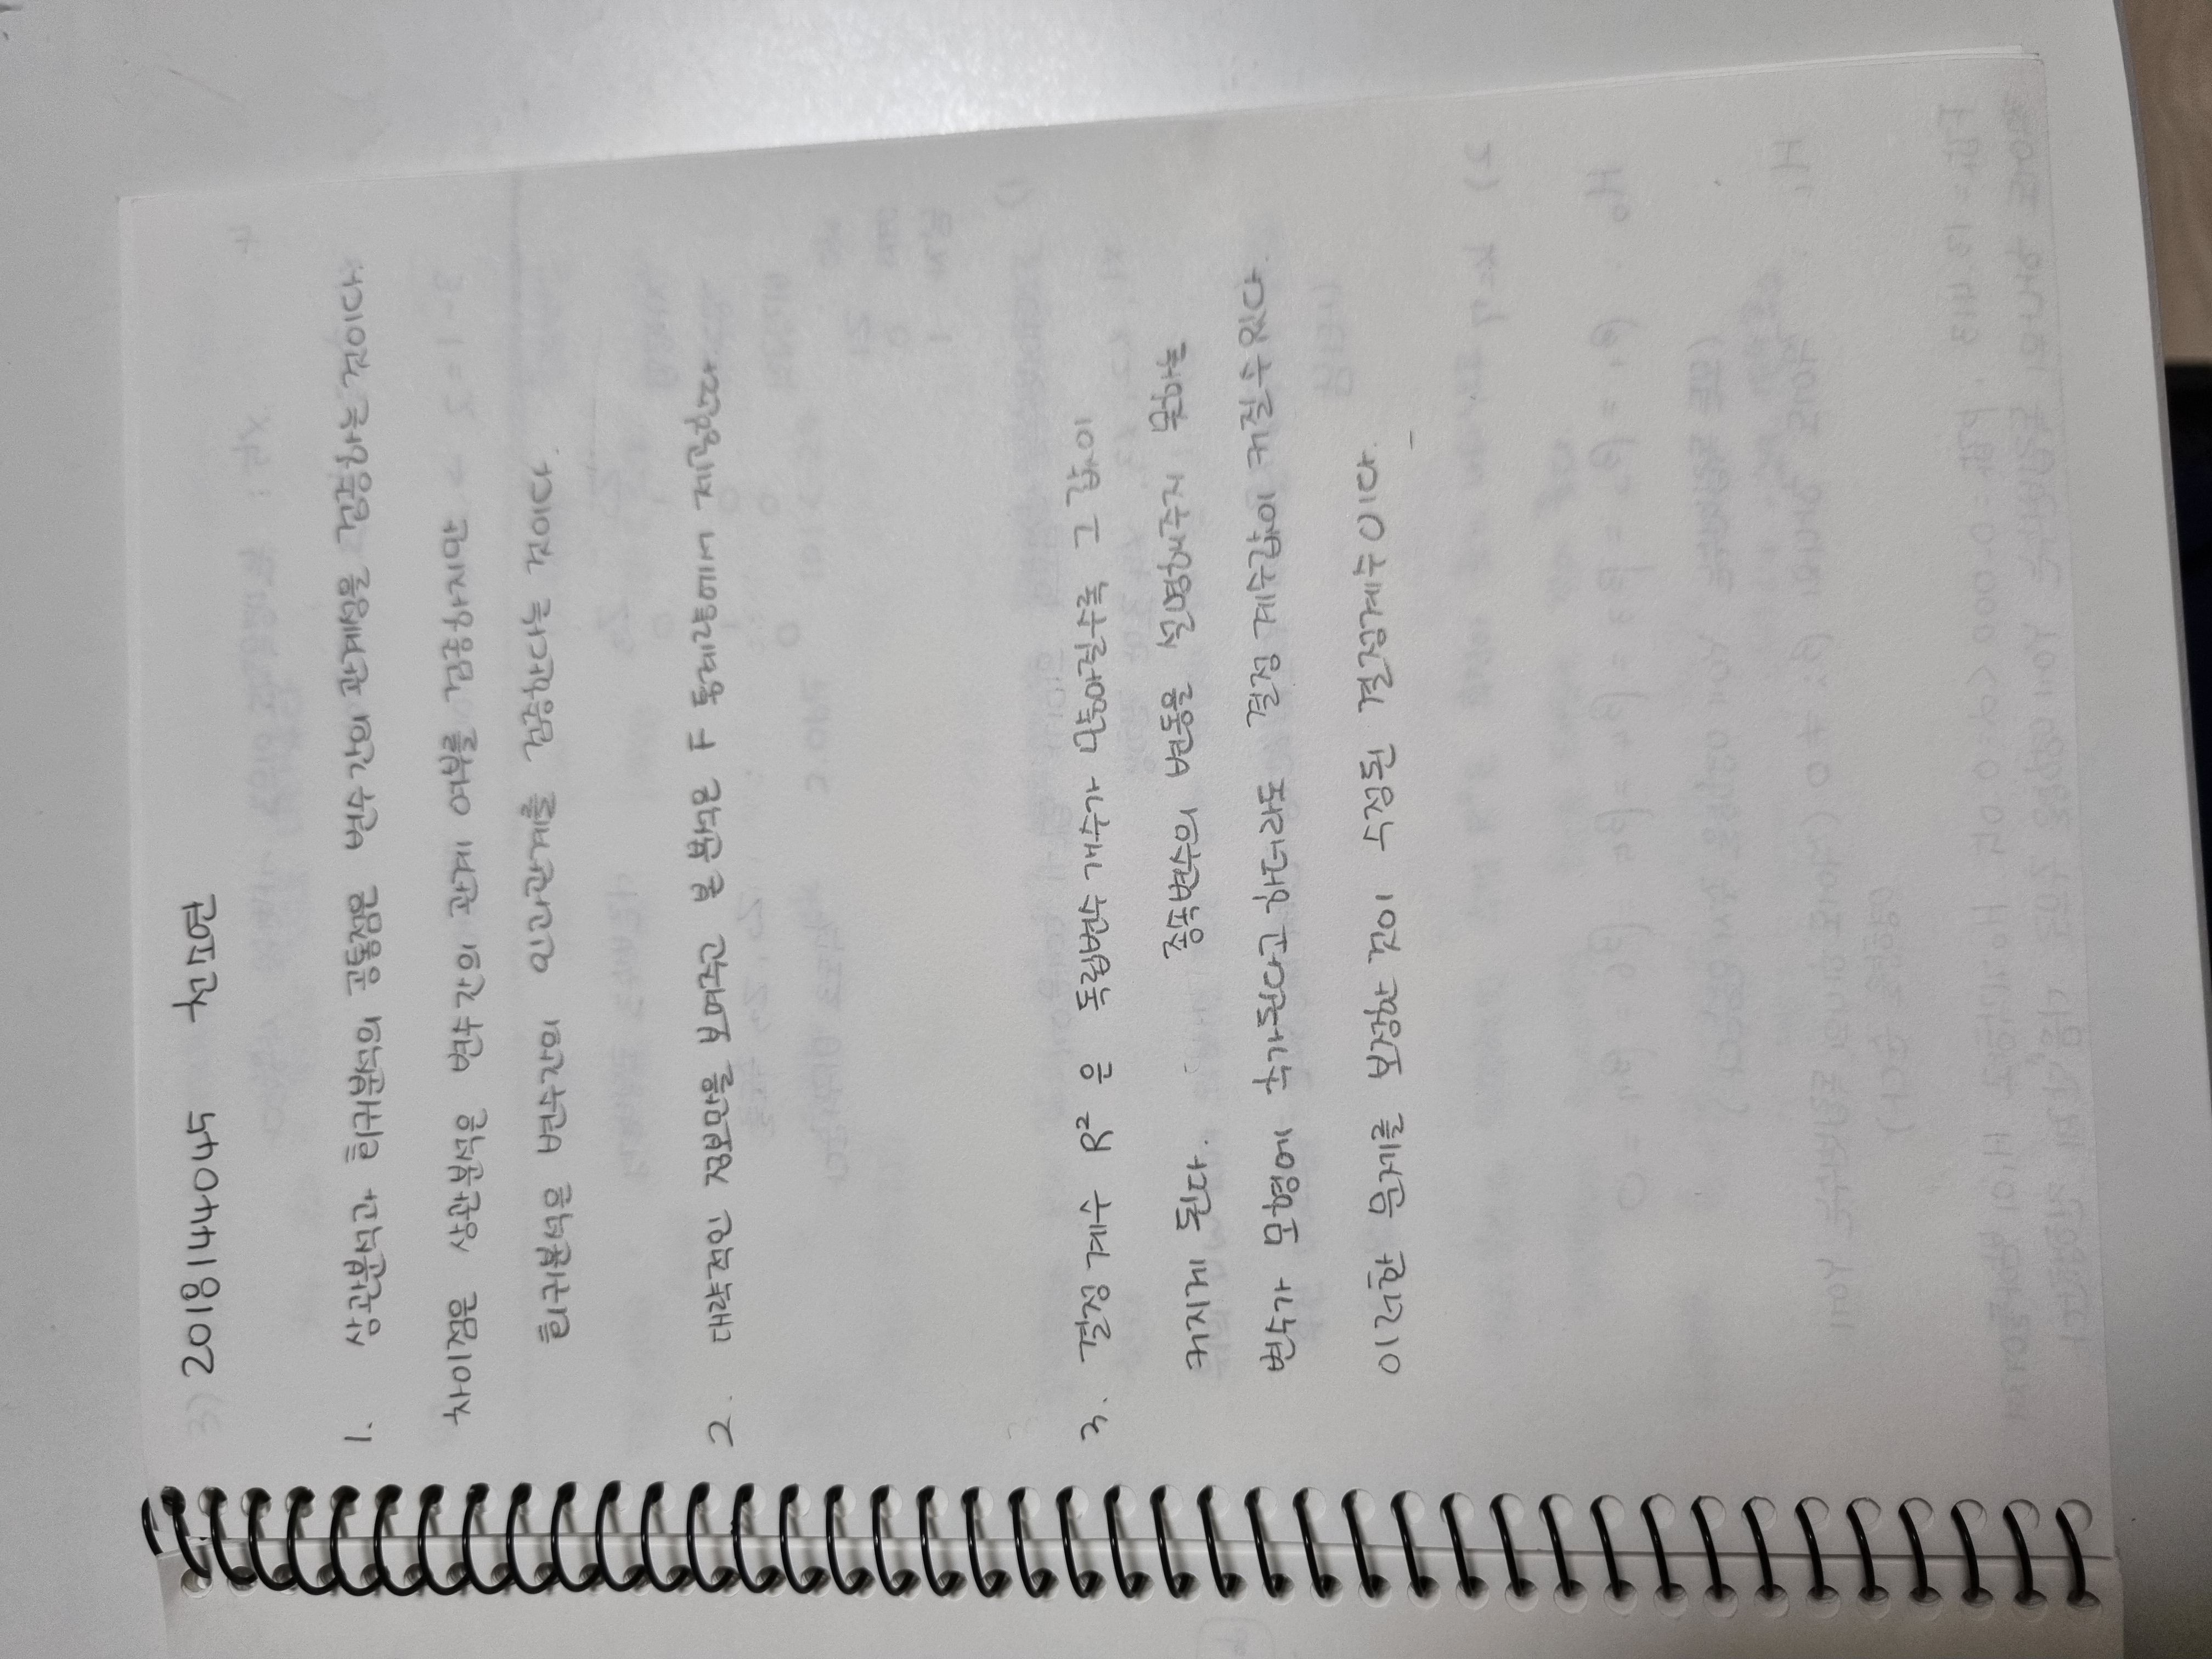 2018144045 천소연
1. 상관분석과 회귀분석의 공통점은 변수간의 관계성을 검증하는 것이다.
차이점은 상관분석은 변수간의 관계 여부를 검증하지만
회귀분석은 변수간의 인과관계를 검증한다는 것이다.
2. 대략적인 정보만을 보여주고 본 분석은 F 통계량에서 제공한다
3. 결정계수 R² 은 독립변수 개수가 많아질수록 그 값이
커지게 된다. 종속변수의 변동을 설명해주지 못하는
변수가 모형에 추가된다고 하더라도 결정계수값이 커질수있다.
이러한 문제를 보정한 것이 수정된 결정계수이다.